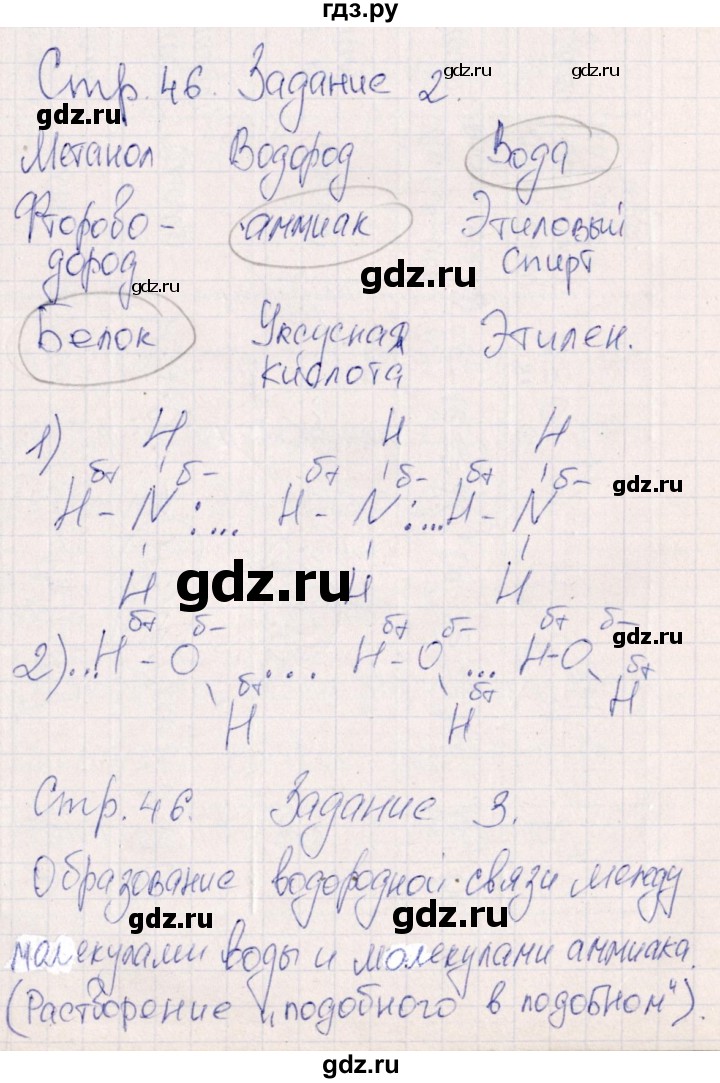 гдз.ру
Стр. 46. Задание 2.
gdz.ru gdz.ru gdz.ru
Метанол Водород Вода
Фторово- аммиак Этиловый
дород спирт
gdz.ru gdz.ru
Белок Уксусная Этилен.
кислота
gdz.ru
1) H H H
δ+ δ- δ+ δ- δ+ δ-
H - N :.... H - N :.... H - N
gdz.ru
H H H
gdz.ru
δ+ δ- δ+ δ- δ+ δ-
2)...H - O .... H - O ... H - O
gdz.ru
δ+ δ+ δ+
H H H
Стр. 46. Задание 3.
gdz.ru
Образование водородной связи между
gdz.ru gdz.ru
молекулами воды и молекулами аммиака.
(Растворение „подобного в подобном").
gdz.ru gdz.ru
gdz.ru